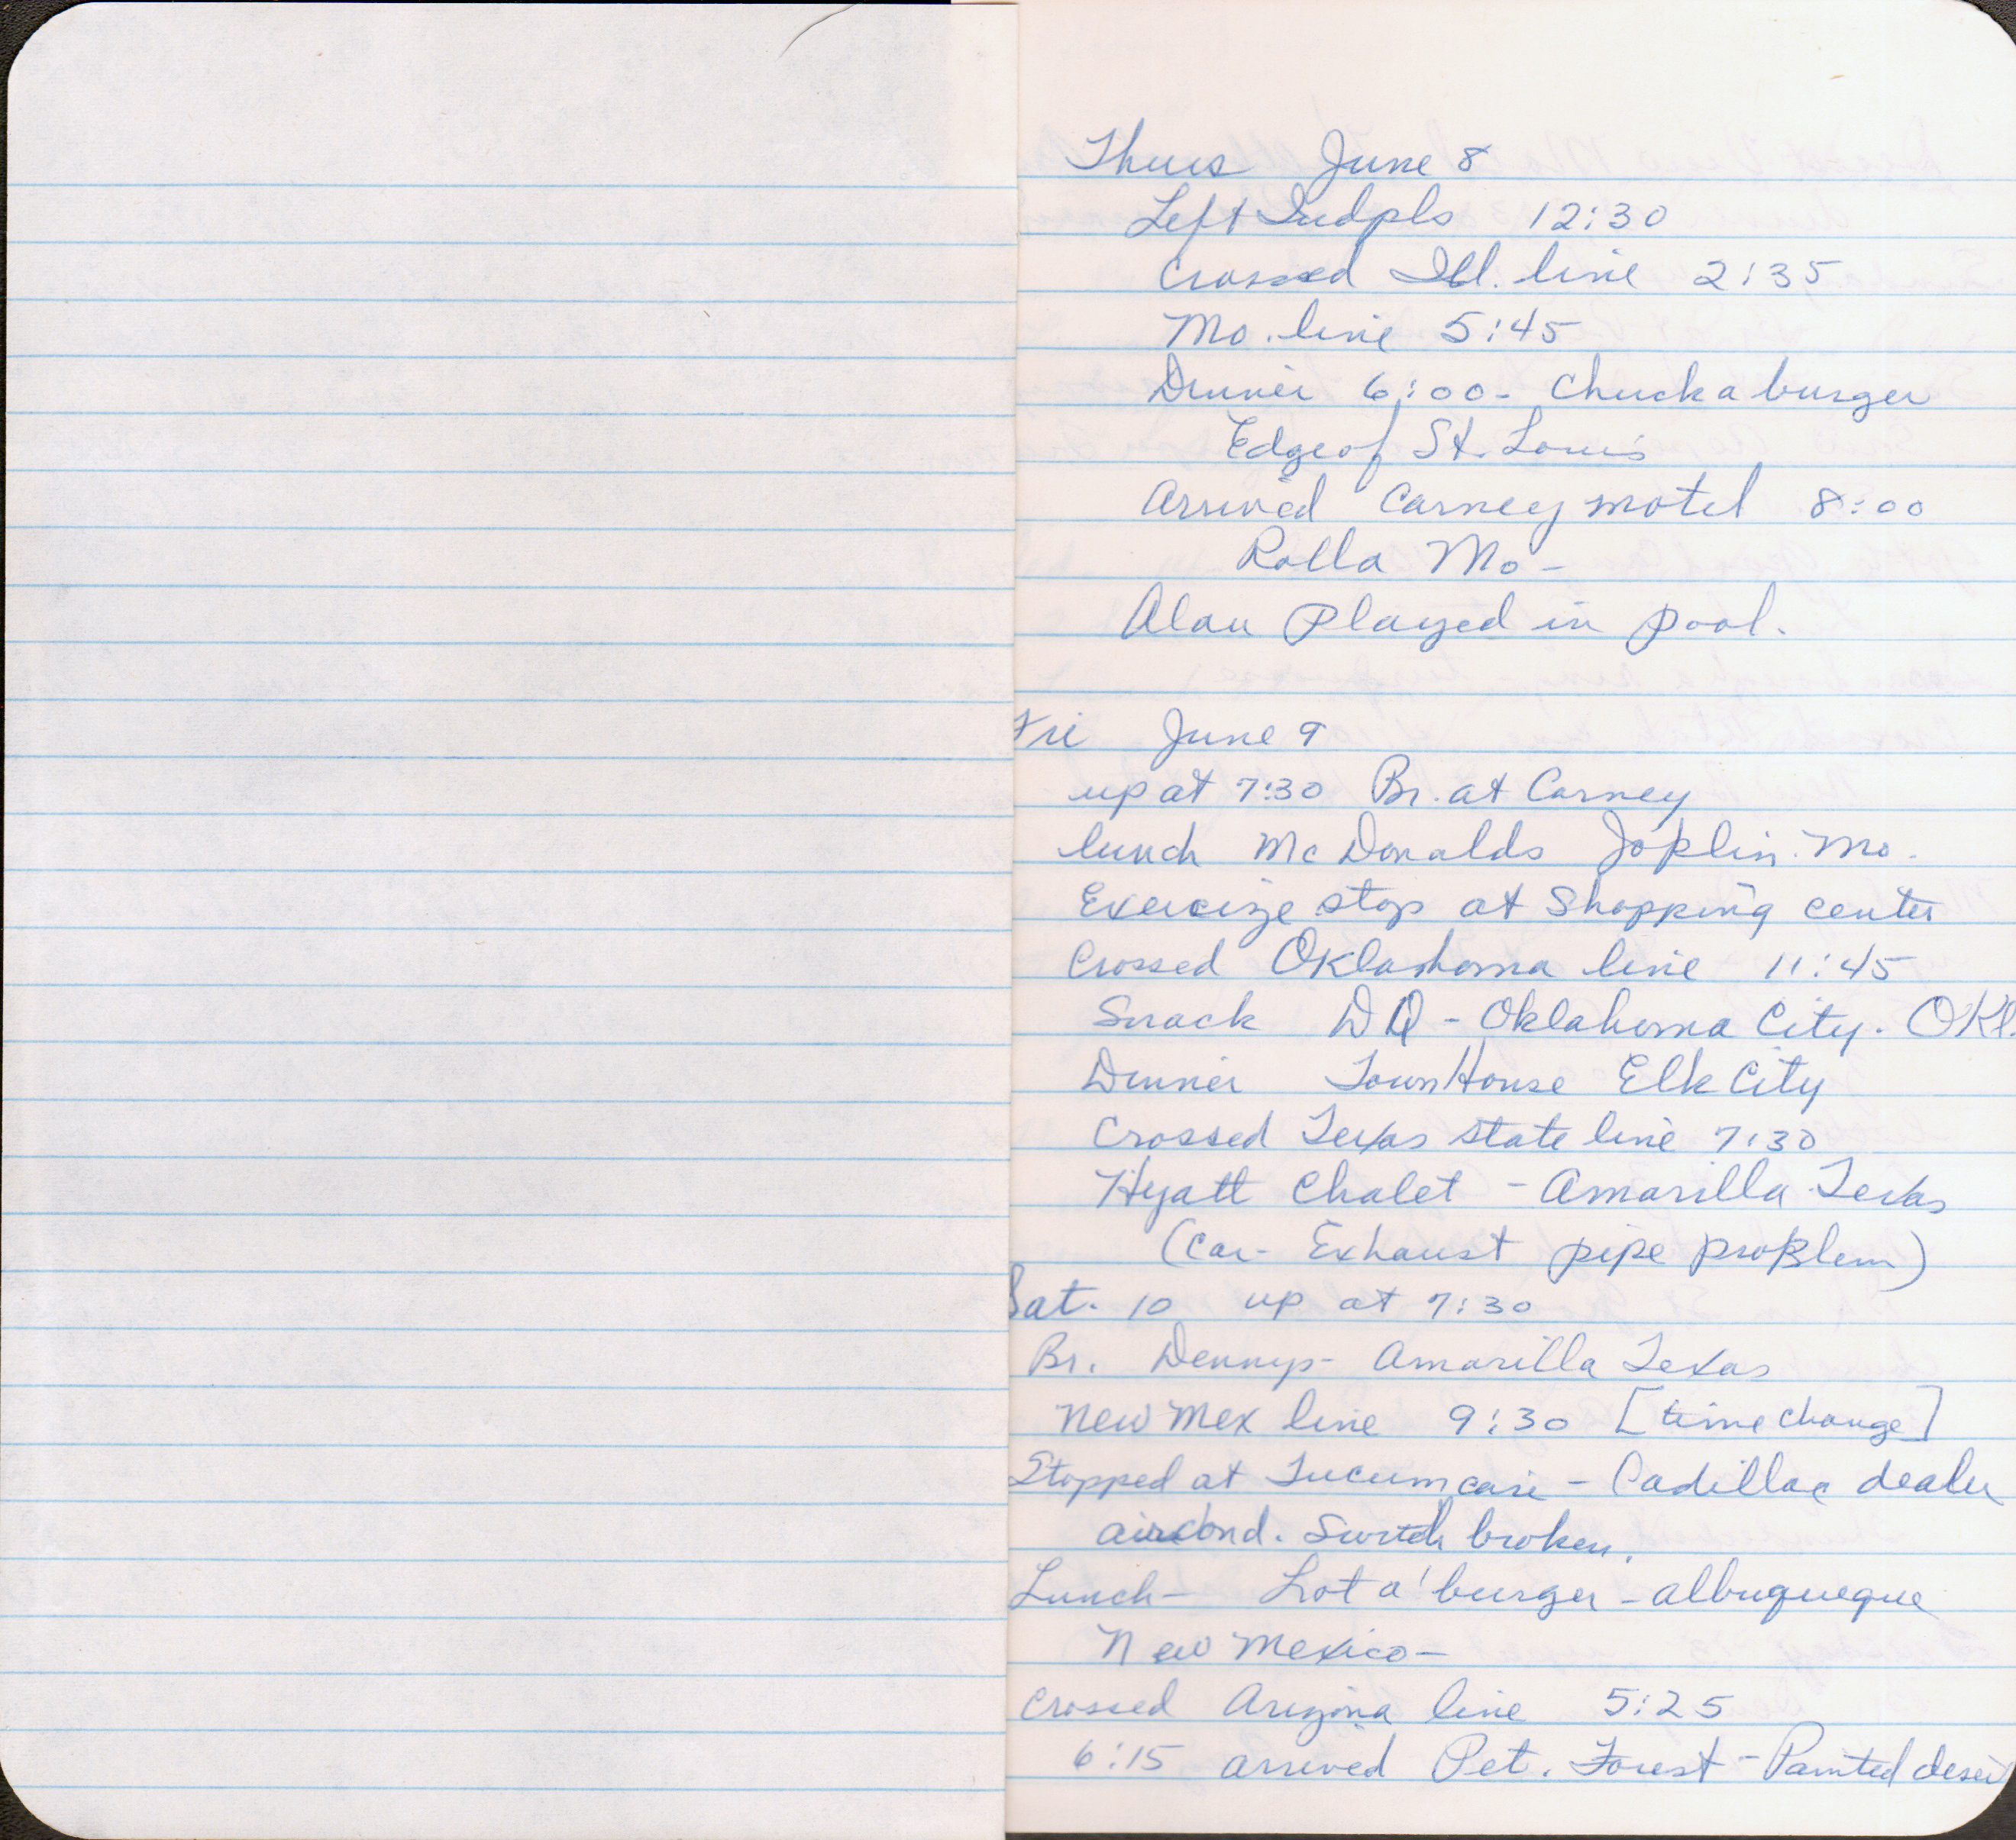 Thurs June 8
Left Indpls 12:30
Crossed Ill. line 2:35
Mo. line 5:45
Dinner 6:00 - Chuck a burger
Edge of St. Louis
Arrived Carney motel 8:00
Rolla Mo -
Alan played in pool.
Fri June 9
up at 7:30 Br. at Carney
lunch McDonalds Joplin. Mo.
Exercize stop at Shopping center
Crossed Oklahoma line 11:45
Snack DQ - Oklahoma City. Okl.
Dinner Town House Elk City
Crossed Texas state line 7:30
Hyatt Chalet - Amarilla Texas
(Car- Exhaust pipe problem)
Sat. 10 up at 7:30
Br. Dennys - Amarilla Texas
New Mex line 9:30 [time change]
Stopped at Tucumcari - Cadillac dealer
aircond. Switch broken.
Lunch - Lot a' burger - Albuquerque
New Mexico -
Crossed Arizona line 5:25
6:15 arrived Pet. Forest - Painted desert